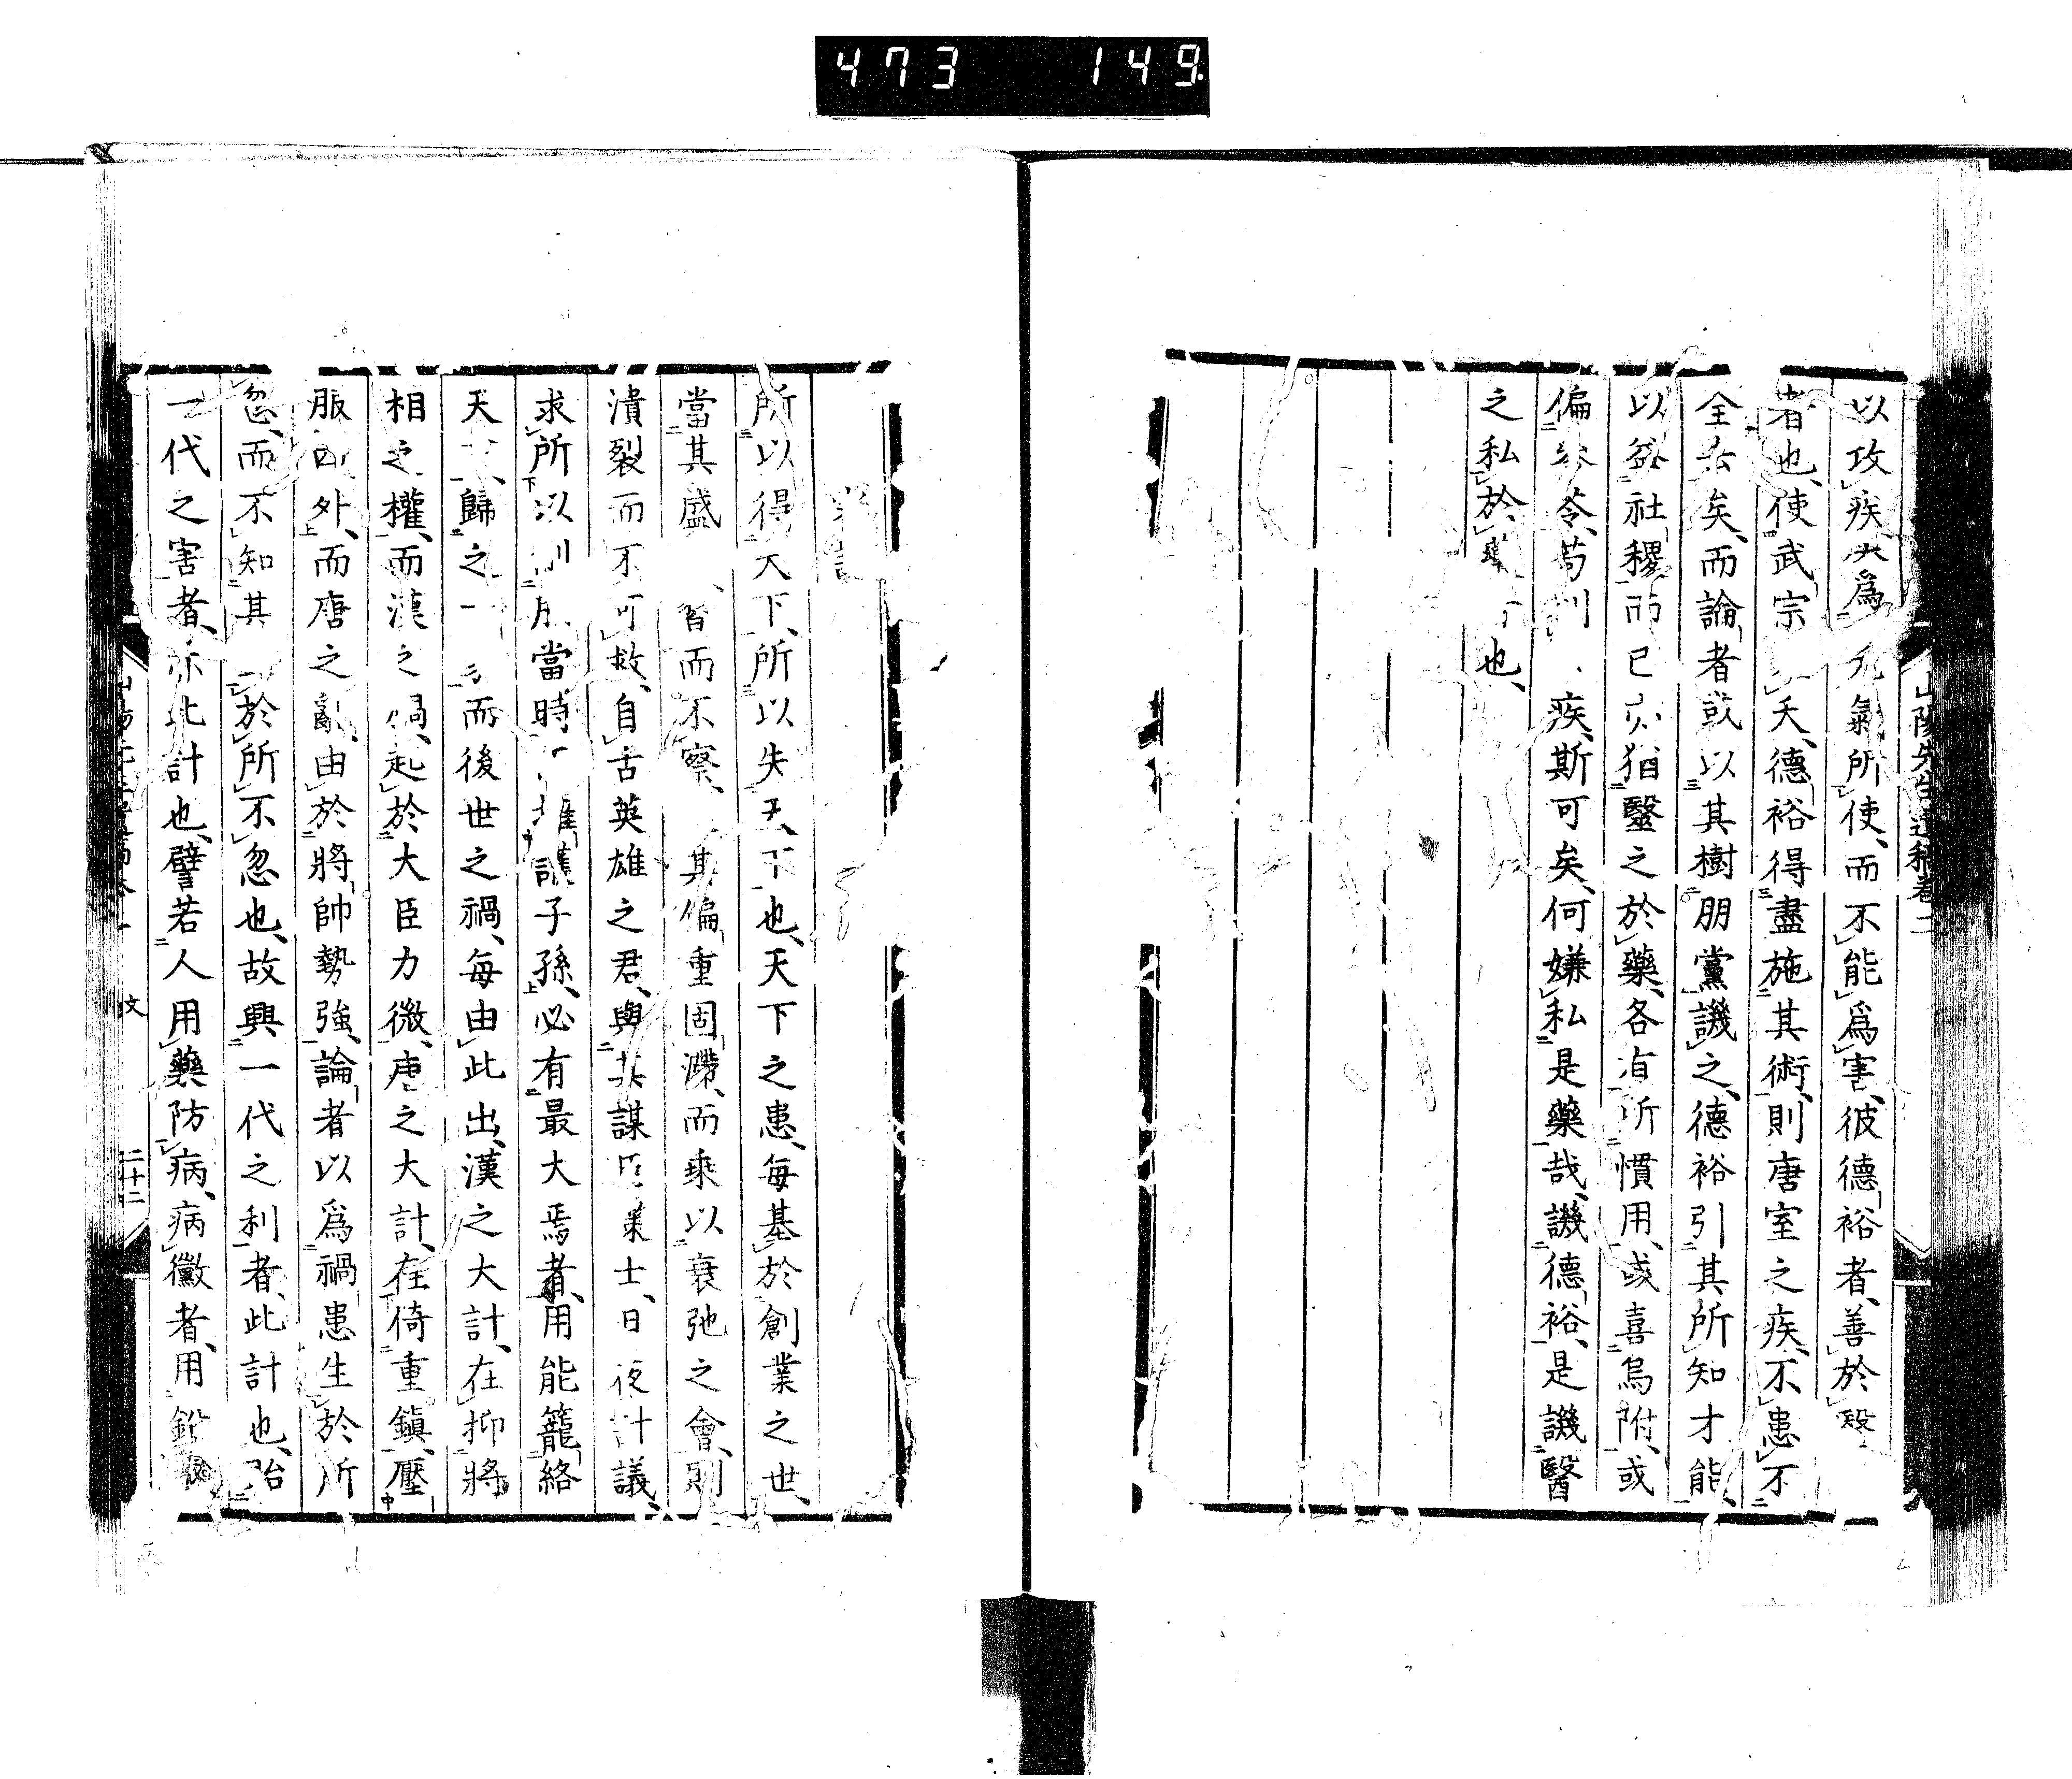 473 149
山陽先生遺稿卷二
以攻疾必爲元氣所使、而不能爲害、彼德裕者、善於
者也、使武宗夭、德裕得盡施其術、則唐室之疾、不患不
全去矣、而論者或以其樹朋黨譏之、德裕引其所知才能、
以益社稷而已亦猶醫之於藥、各有所慣用、或喜烏附、或
偏參苓、苟疾、斯可矣、何嫌私是藥哉、譏德裕、是譏醫
之私於也、
所以得天下、所以失天下也、天下之患、每基於創業之世、
當其盛習而不察、其偏重固滯、而乘以衰弛之會、則
潰裂而不可救、自古英雄之君、與其謀臣策士、日夜計議、
求所以當時護子孫、必有最大焉者、用能籠絡
天歸之而後世之禍、每由此出、漢之大計、在抑將
相之權、而漢之禍、起於大臣力微、唐之大計、在倚重鎭、壓
服四外、而唐之亂、由於將帥勢強、論者以爲禍患生於所
忽、而不知其於所不忽也、故興一代之利者、此計也、貽
一代之害者、亦此計也、譬若人用藥防病、病黴者、用鉛
文 二十二